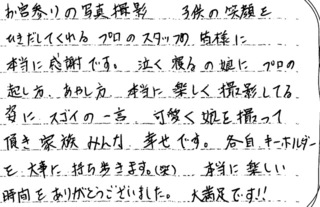 お宮参りの写真撮影 子供の笑顔を
ひきだしてくれる プロのスタッフの皆様に
本当に感謝です。 泣く 娘に プロの
起し方、あやし方 本当に 楽しく 撮影してる
姿に スゴイの一言 可愛く 娘を 撮って
頂き 家族 みんな 幸せです。 各自 キーホルダー
を 大事に 持ち歩きます。(笑) 本当に 楽しい
時間を ありがとうございました。 大満足です!!